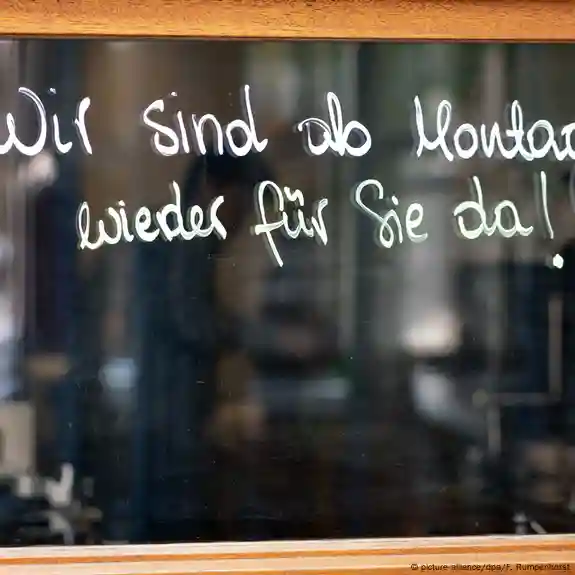 Wir sind ab Montag
wieder für Sie da!
© picture-alliance/dpa/F. Rumpenhorst